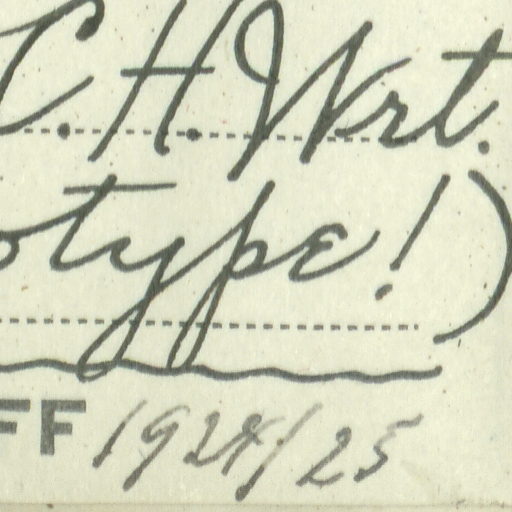 C. H. Wrt.
otype!)
FF 1924/25